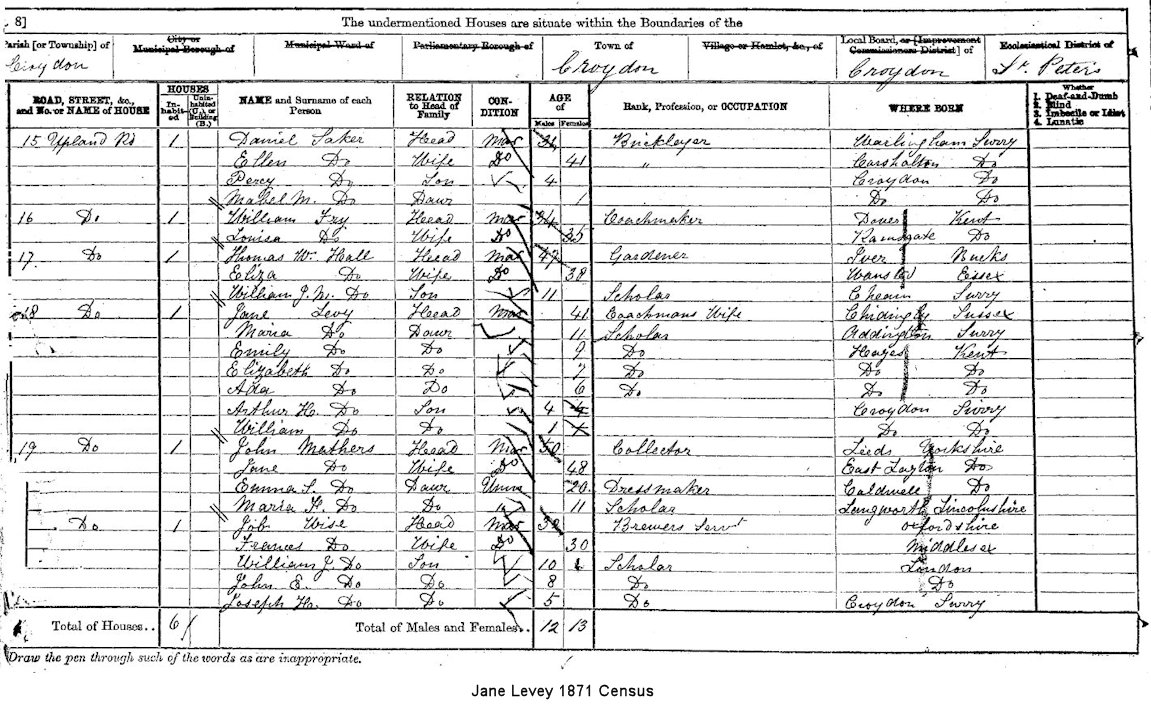 8] The undermentioned Houses are situate within the Boundaries of the
Parish [or Township] of City or Municipal Borough of Municipal Ward of Parliamentary Borough of Town of Village or Hamlet, &c., of Local Board, or [Improvement Commissioners District] of Ecclesiastical District of
Croydon Croydon Croydon St. Peters
ROAD, STREET, &c., and No. or NAME of HOUSE HOUSES Inhabited Uninhabited (U.), or Building (B.) NAME and Surname of each Person RELATION to Head of Family CONDITION AGE of Males Females Rank, Profession, or OCCUPATION WHERE BORN Whether 1. Deaf-and-Dumb 2. Blind 3. Imbecile or Idiot 4. Lunatic
15 Upland Rd 1 Daniel Saker Head Mar Bricklayer Warlingham Surry
Ellen Do Wife Do 41 " Carshalton Do
Percy Do Son 4 Croydon Do
Mabel M. Do Daur 1 Do Do
16 Do 1 William Fry Head Mar 34 Coachmaker Dover Kent
Louisa Do Wife Do 35 Ramsgate Do
17 Do 1 Thomas W. Hall Head Mar 47 Gardener Iver Bucks
Eliza Do Wife Do 38 Wansted Essex
William J. M. Do Son 11 Scholar Cheam Surry
18 Do 1 Jane Levy Head Mar 41 Coachmans Wife Chidingly Sussex
Maria Do Daur 11 Scholar Addington Surry
Emily Do Do 9 Do Hayes Kent
Elizabeth Do Do 7 Do Do Do
Ada Do Do 6 Do Do Do
Arthur H. Do Son 4 4 Croydon Surry
William Do Do 1 Do Do
19 Do 1 John Mathers Head Mar 50 Collector Leeds Yorkshire
Jane Do Wife Do 48 East Layton Do
Emma S. Do Daur Unm 20 Dressmaker Caldwell Do
Maria H. Do Do 11 Scholar Langworth Lincolnshire
Do 1 Job Wise Head Mar 32 Brewers Servt Oxfordshire
Frances Do Wife Do 30 Middlesex
William J. Do Son 10 Scholar London
John E. Do Do 8 Do Do
Joseph H. Do Do 5 Do Croydon Surry
Total of Houses.. 6 Total of Males and Females.. 12 13
Draw the pen through such of the words as are inappropriate.
Jane Levey 1871 Census